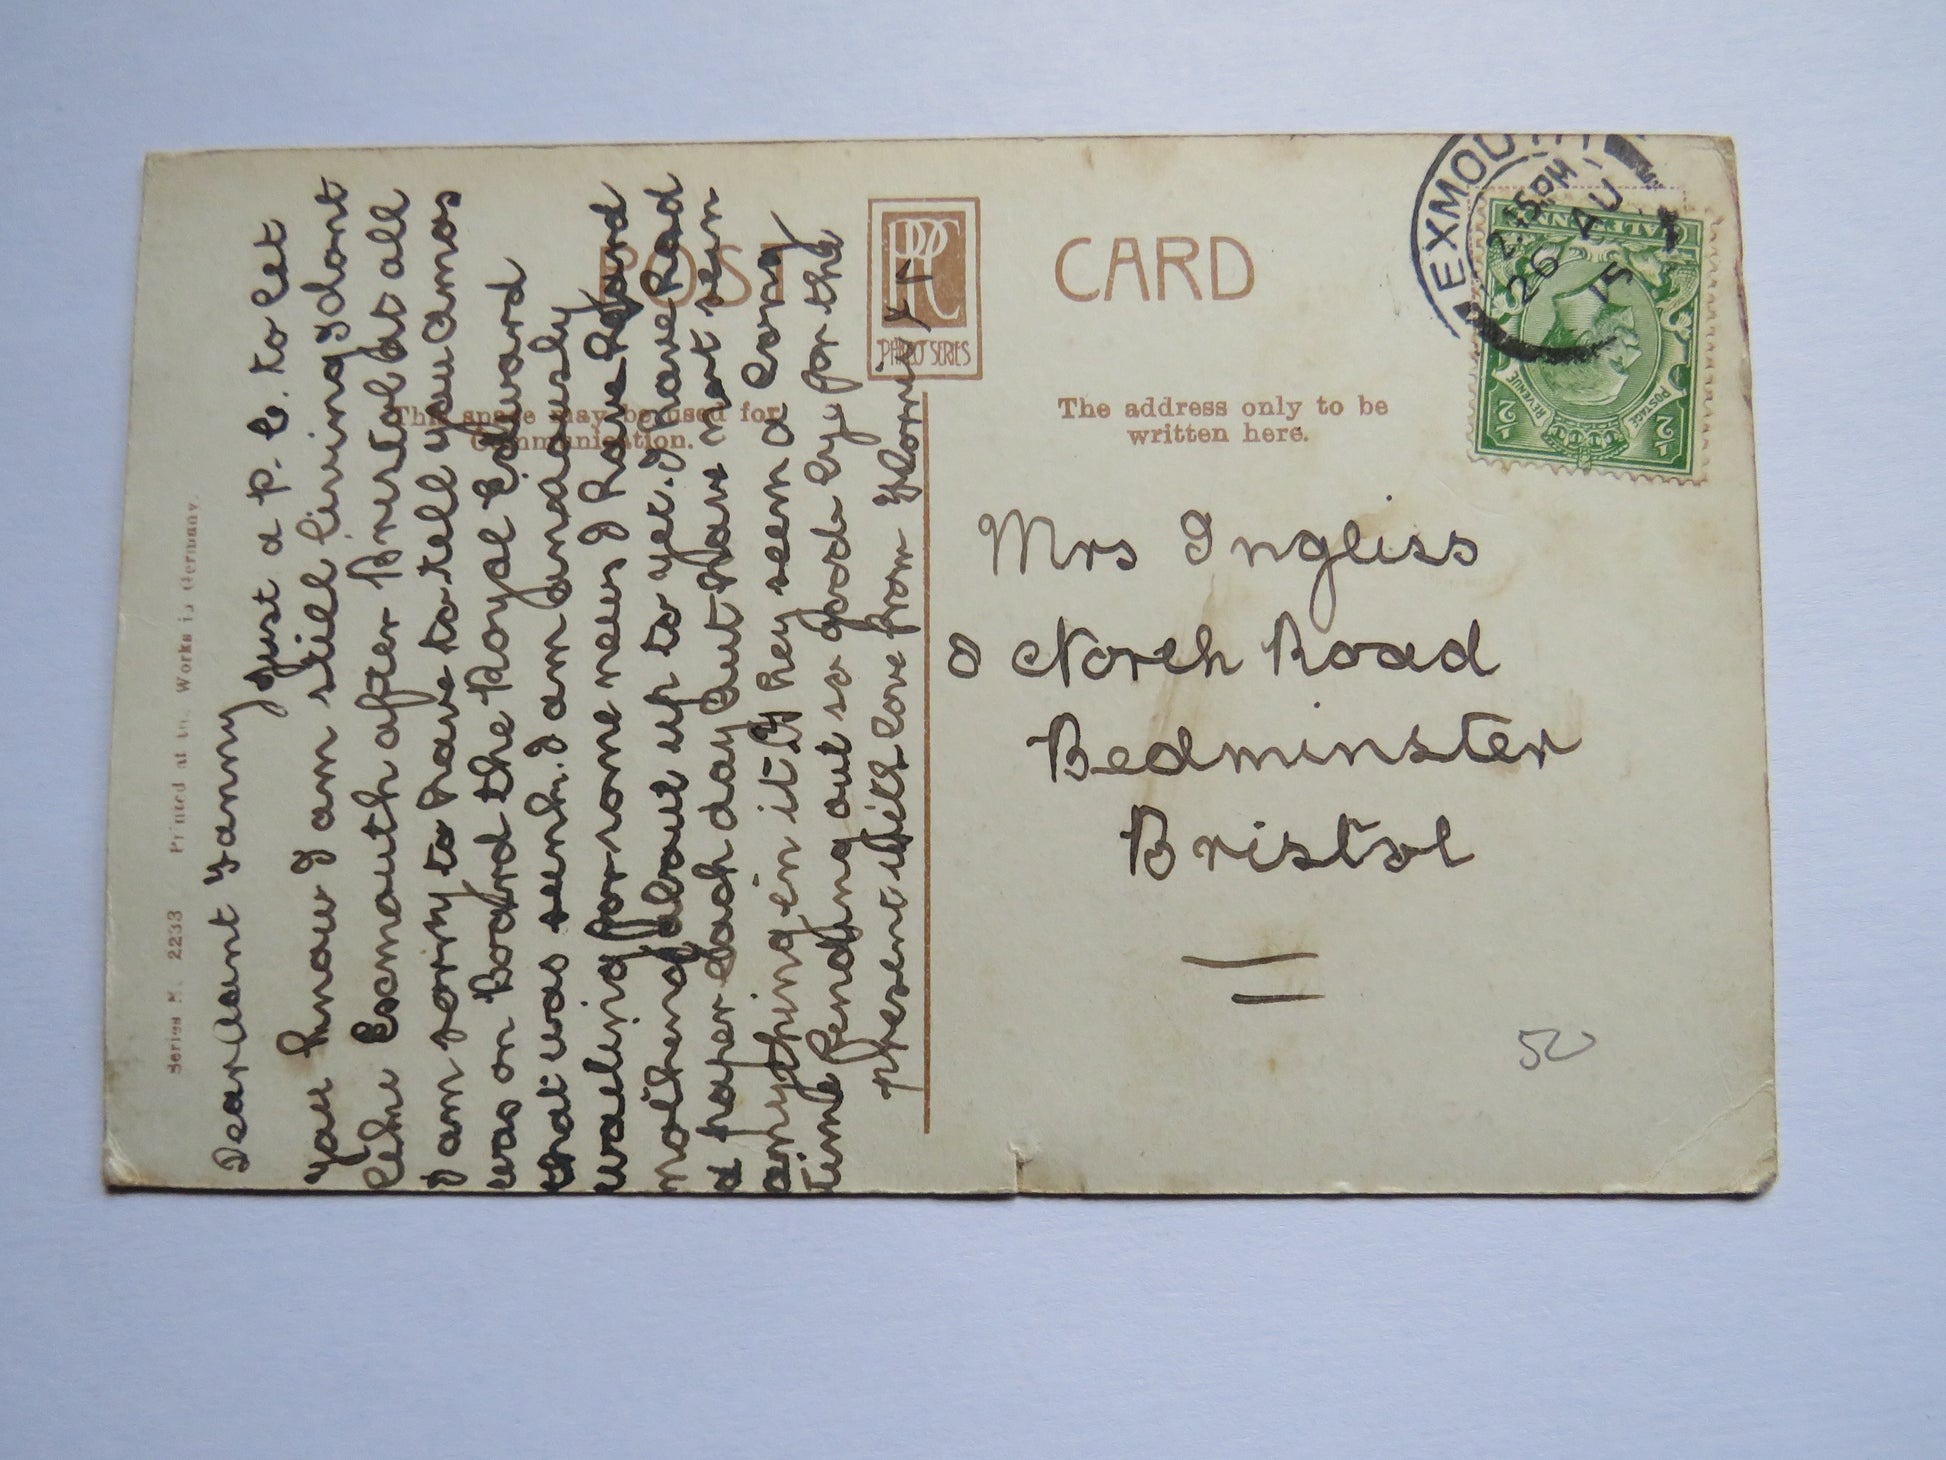 Series M. 2233 Printed at the Works in Germany.
POST CARD
PPC
PARBO SERIES
This space may be used for
Communication.
The address only to be
written here.
EXMOUTH
2.15 PM
26 AU
15
HALFPENNY
POSTAGE REVENUE
1/2 1/2
Dear Aunt Fanny Just a p. C. to let
you know I am still living I dont
like Exmouth after Bristol at all
I am sorry to have to tell you Amos
was on Board the Royal Edward
that was sunk. I am anxiously
waiting for some news I have heard
nothing about up to yet. I have had
a paper each day but have not seen
anything in it They seem a long
time sending out so good bye for the
present with love from Florrie
Mrs Ingliss
North Road
Bedminster
Bristol
50